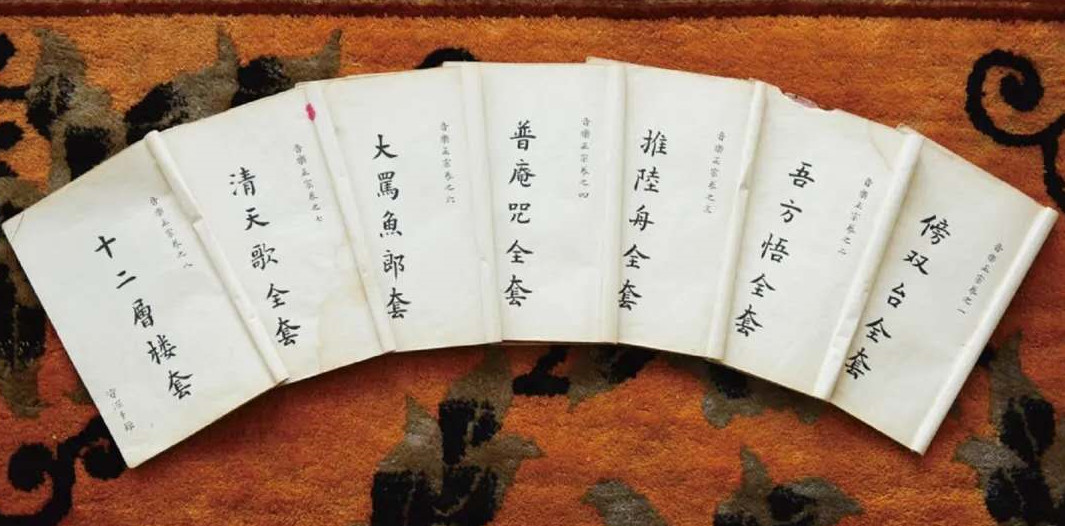 音樂正宗卷之一
傍双台全套
音樂正宗卷之二
吾方悟全套
音樂正宗卷之三
推陸舟全套
音樂正宗卷之四
普庵咒全套
音樂正宗卷之六
大罵魚郎套
音樂正宗卷之七
清天歌全套
音樂正宗卷之八
十二層楼套